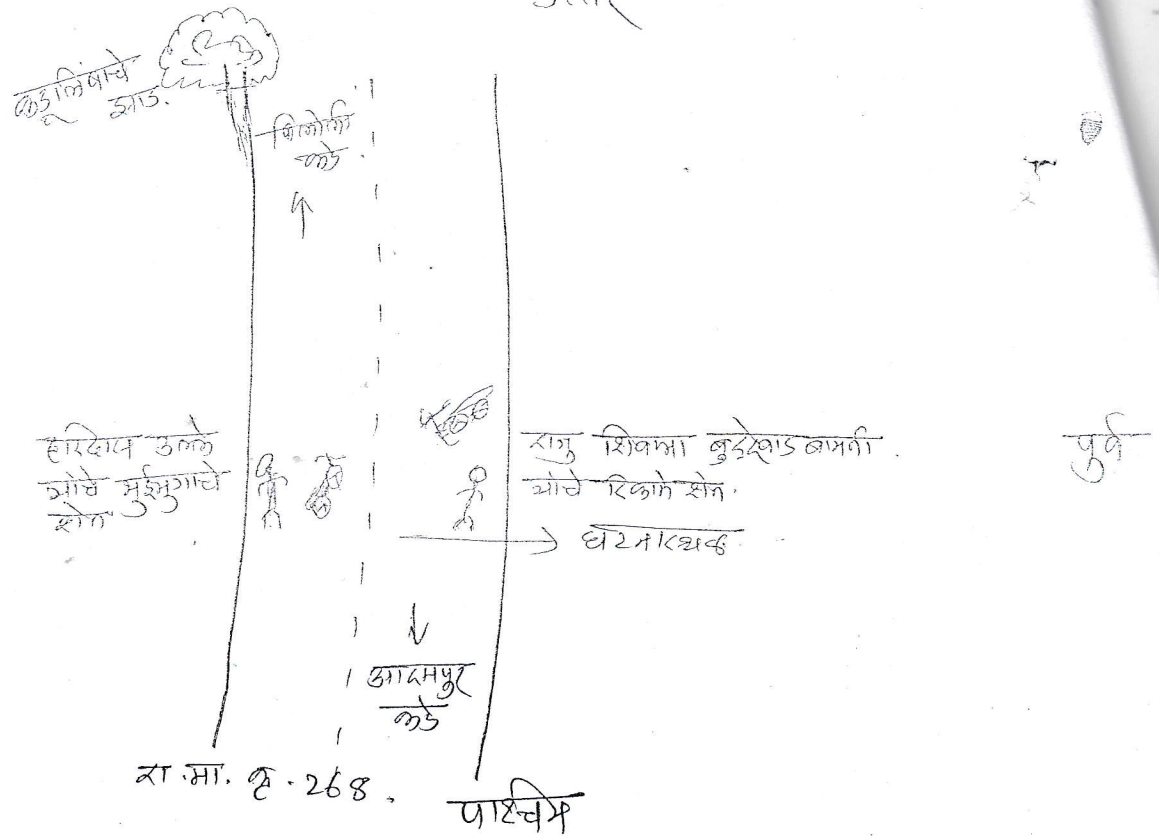 उत्तर
कडूलिंबाचे
झाड.
कडे.
हरिदास उल्ले
यांचे भुईमुगाचे
शेत
रामु शिवका
यांचे रिकामे शेत.
पुर्व
घटनास्थळ
आदमपुर
कडे
रा.मा. क्र. 268.
पाश्चिम